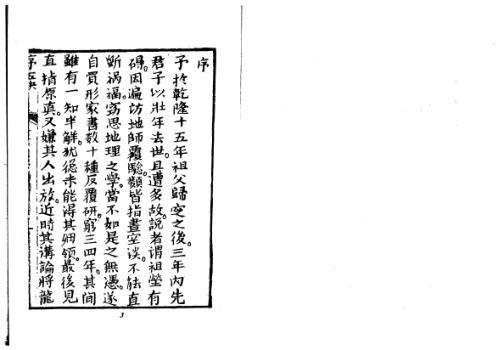 序
予於乾隆十五年祖父歸窆之後三年內先
君子以壯年去世且遭多故說者谓祖塋有
碍因遍访地師覆驗類皆指畫空谈不能直
斷禍福窃思地理之學當不如是之無憑遂
自買形家書数十種反覆研窮三四年其间
雖有一知半解犹恨未能得其綱領最後見
直指原真又嫌其人出放近時其講論將龍
序
3